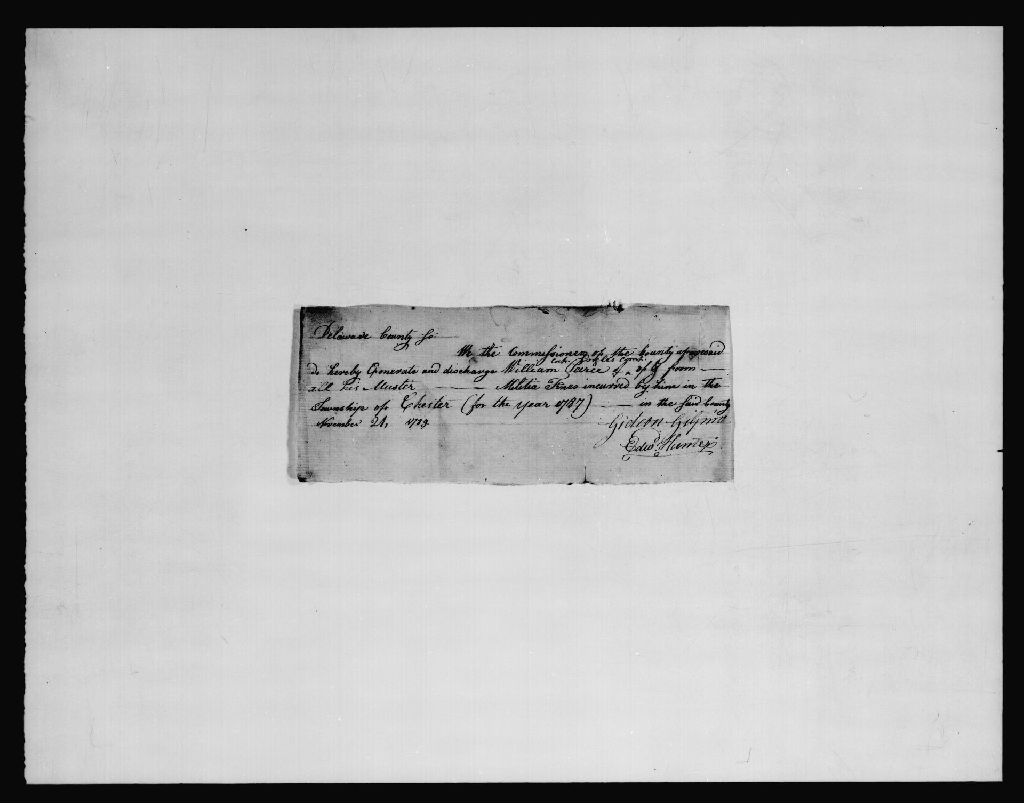 Delaware County ss
We the Commissioners of the County aforesaid
do hereby Exonerate and discharge William Peirce of from
all his Muster Militia Fines incurred by him in the
Township of Chester (for the year 1787) in the said County
November 24,
Gideon Gilpin
Edwd Hunter